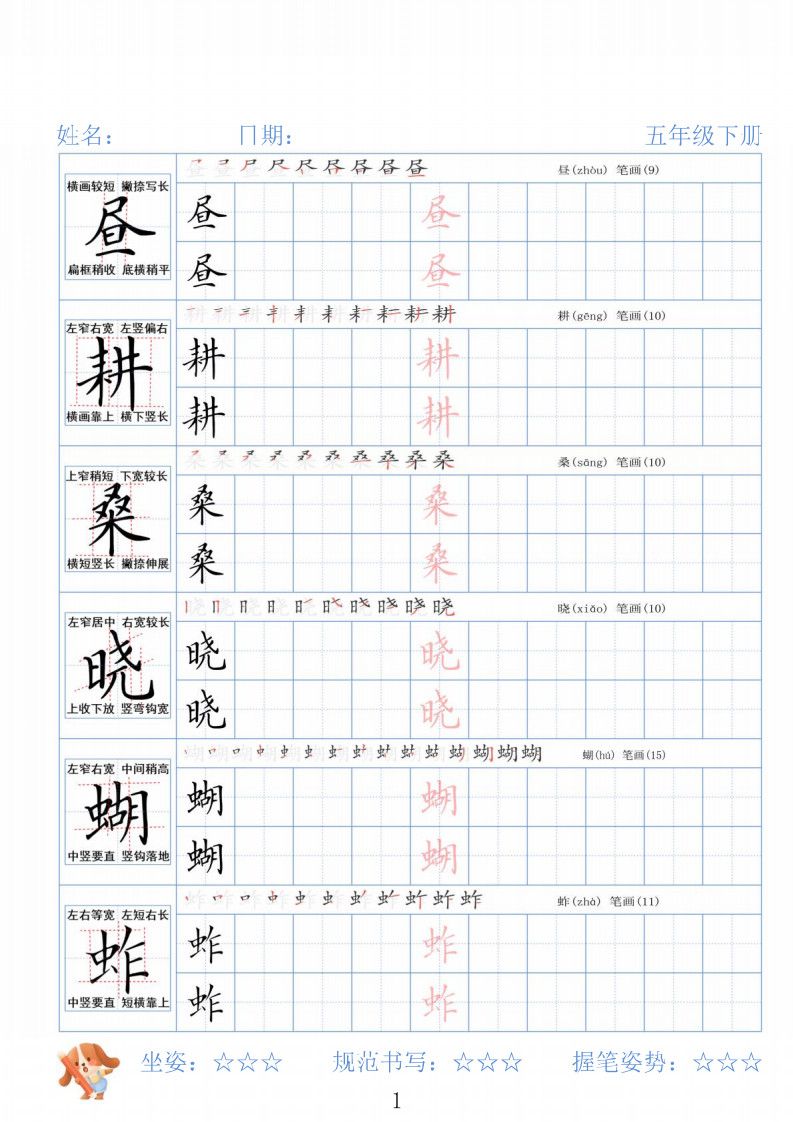 姓名： 日期： 五年级下册
昼(zhòu) 笔画(9)
横画较短 撇捺写长
昼 昼 昼
昼 昼
扁框稍收 底横稍平
耕(gēng) 笔画(10)
左窄右宽 左竖偏右
耕 耕 耕
耕 耕
横画靠上 横下竖长
桑(sāng) 笔画(10)
上窄稍短 下宽较长
桑 桑 桑
桑 桑
横短竖长 撇捺伸展
晓(xiǎo) 笔画(10)
左窄居中 右宽较长
晓 晓 晓
晓 晓
上收下放 竖弯钩宽
蝴(hú) 笔画(15)
左窄右宽 中间稍高
蝴 蝴 蝴
蝴 蝴
中竖要直 竖钩落地
蚱(zhà) 笔画(11)
左右等宽 左短右长
蚱 蚱 蚱
蚱 蚱
中竖要直 短横靠上
坐姿：☆☆☆ 规范书写：☆☆☆ 握笔姿势：☆☆☆
1